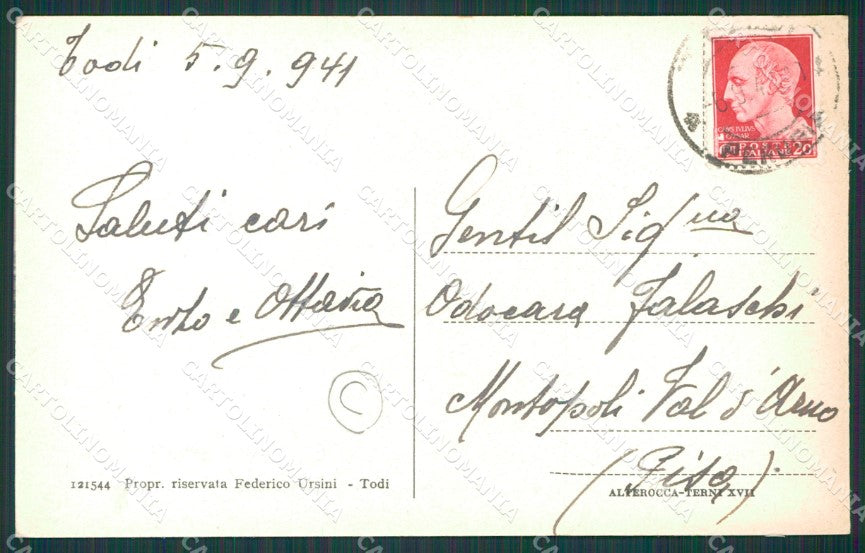 Todi 5.9.941
Saluti cari
e Ottavia
Gentil Sig.na
Odocara Falaschi
Montopoli Val d'Arno
(Pisa)
121544 Propr. riservata Federico Ursini - Todi
ALTEROCCA-TERNI XVII
POSTE
ITALIANE 20
CARTOLINOMANIA